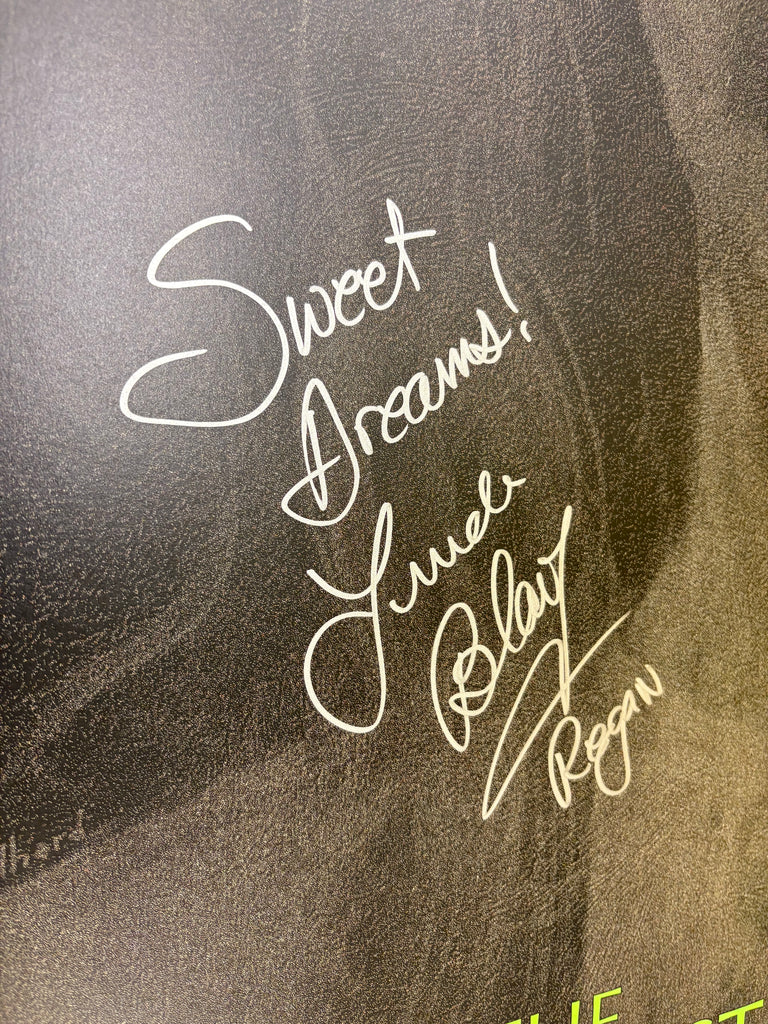 Sweet
Dreams!
Linda
Blair
Regan